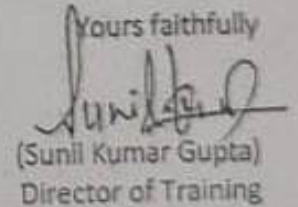 Yours faithfully
Sunil
(Sunil Kumar Gupta)
Director of Training